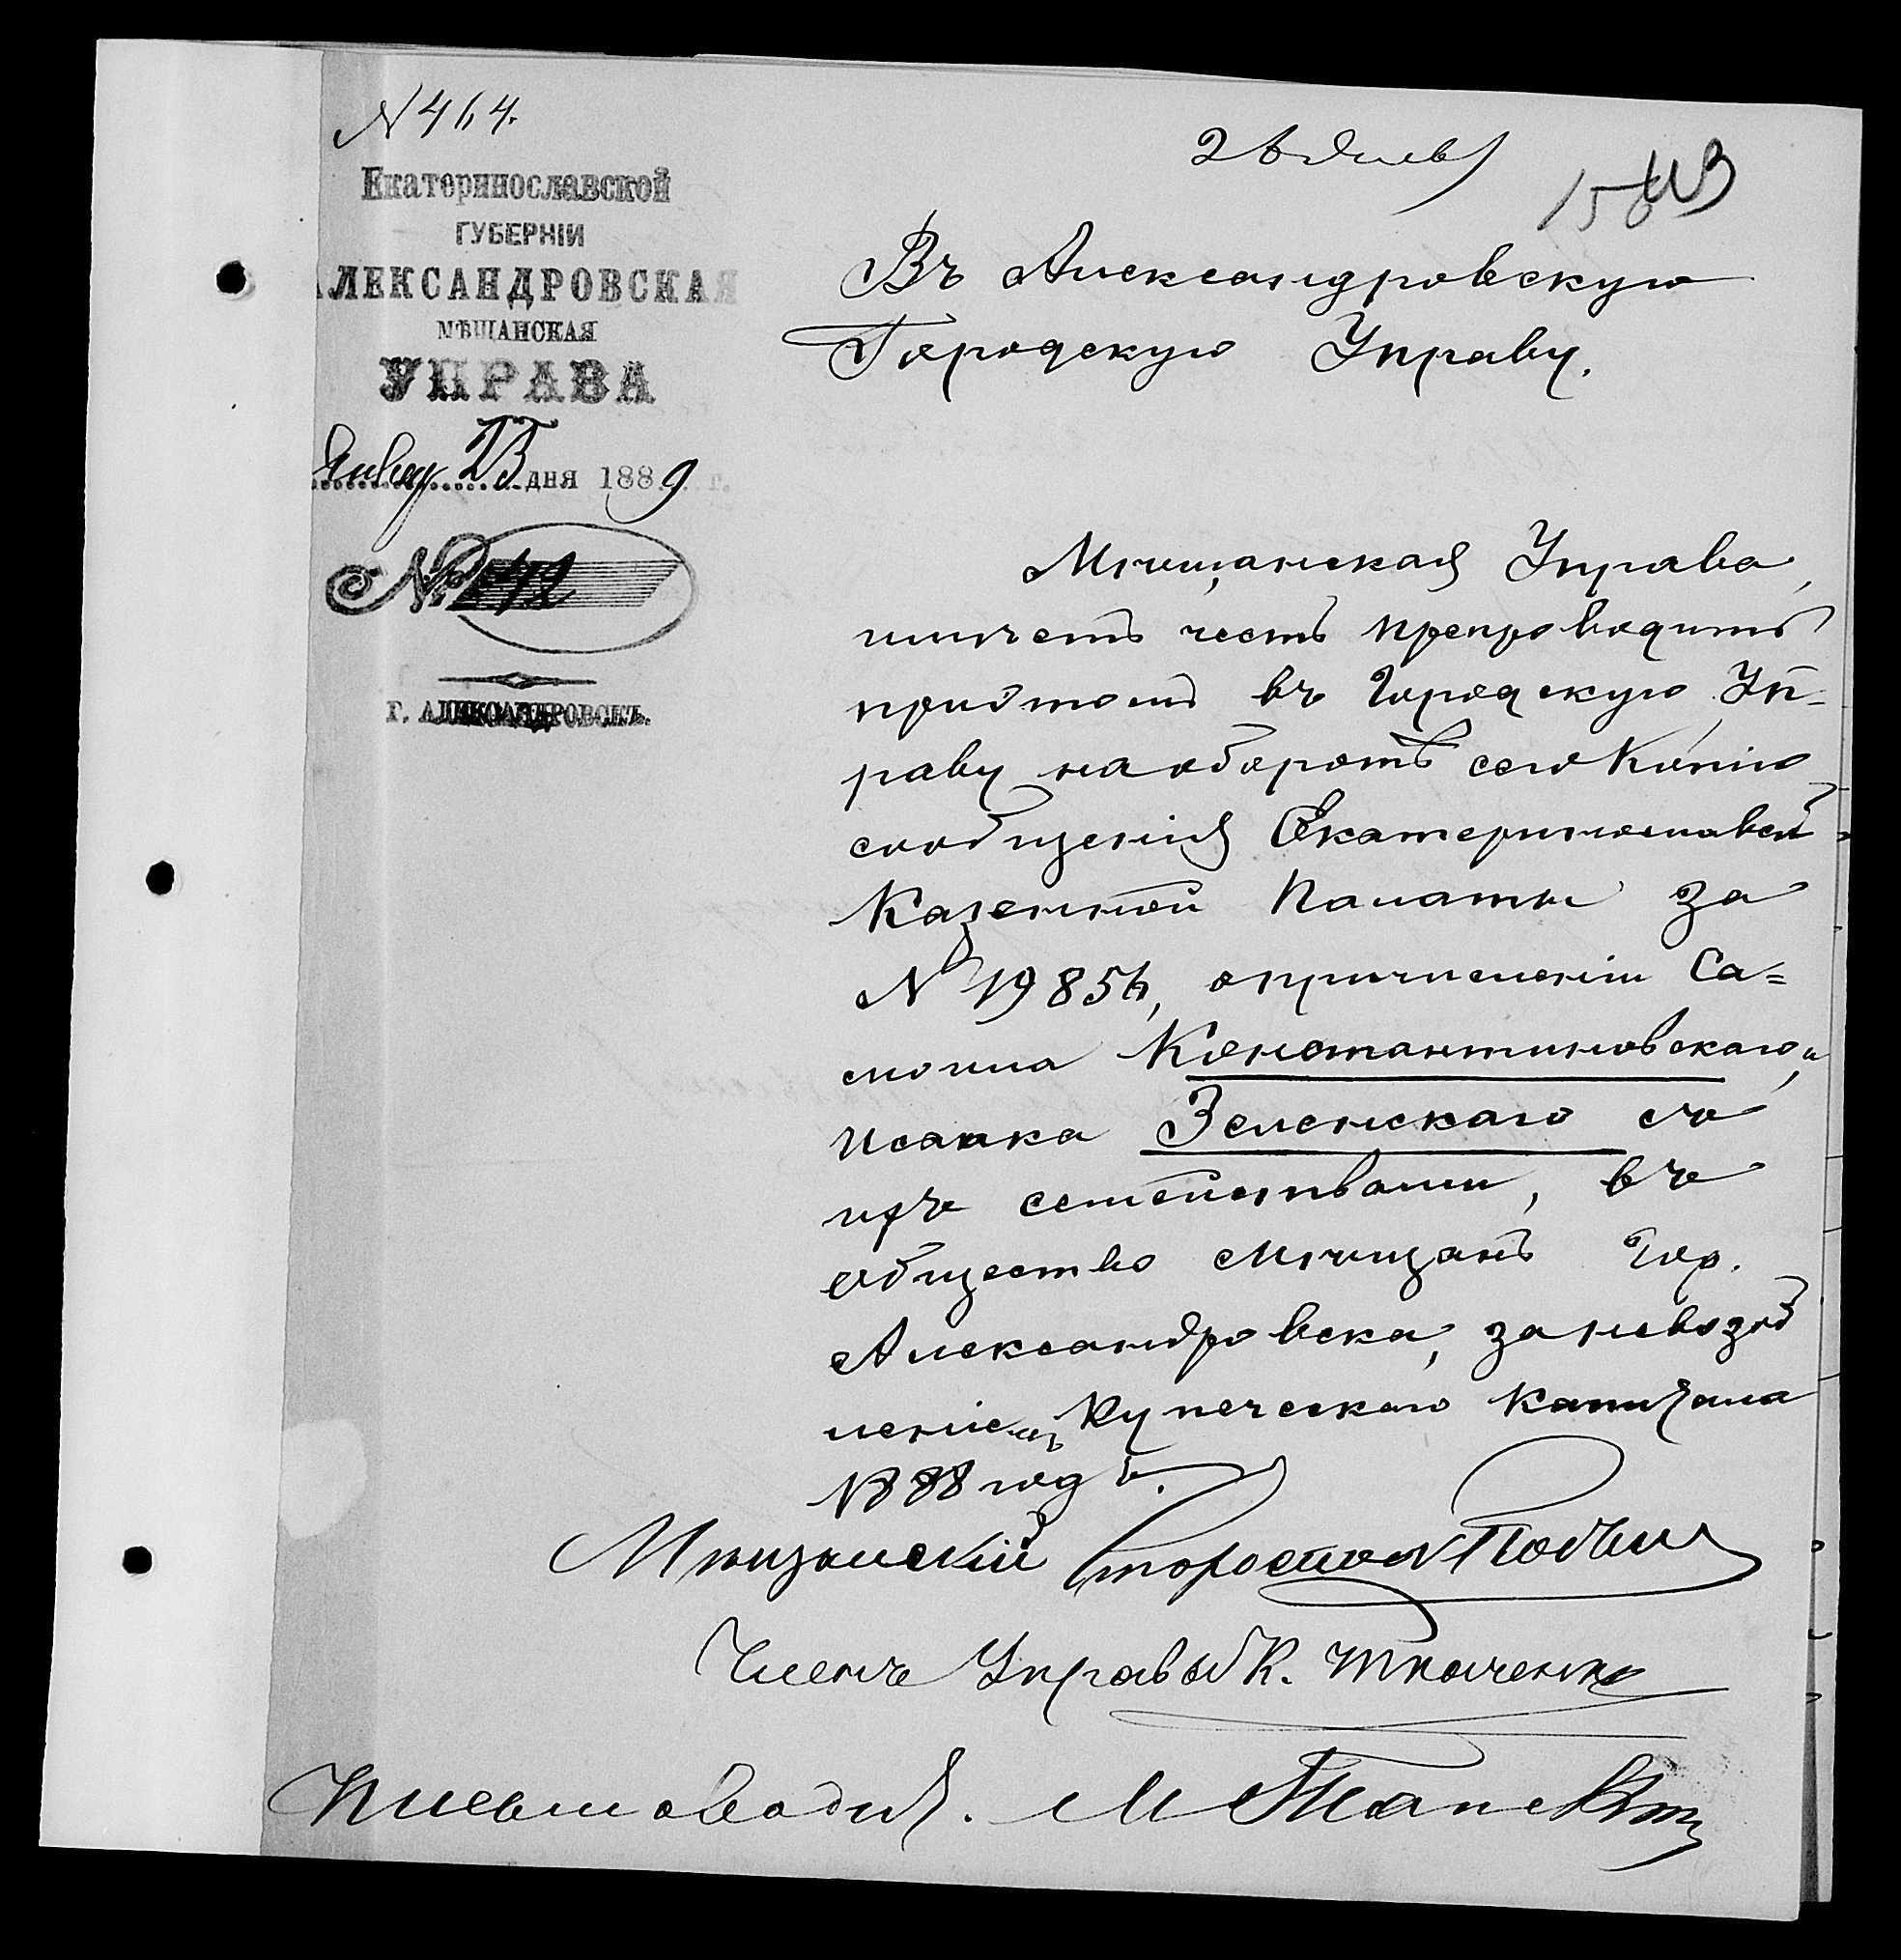 N 464.
Екатеринославской
ГУБЕРНІИ
АЛЕКСАНДРОВСКАЯ
МѢЩАНСКАЯ
УПРАВА
Январ 23 дня 1889 г.
№ 42
г. АЛЕКСАНДРОВСКЪ.
Въ Александровскую
Городскую Управу.
Мѣщанская Управа,
имѣетъ честь препроводить
при этомъ въ Городскую Уп-
раву на оборотѣ сего Копію
сообщенія Екатеринославской
Казенной Палаты за
N 19856, о причисленіи Са=
моила Константиновскаго, и
Исаака Зеленскаго съ
ихъ семействами, въ
общество мѣщанъ гор.
Александровска, за невозоб
леніемъ Купеческаго Капитала
1888 годъ.
Мѣщанскій Староста
Членъ Управы К. Ткаченко
Письмоводит. М